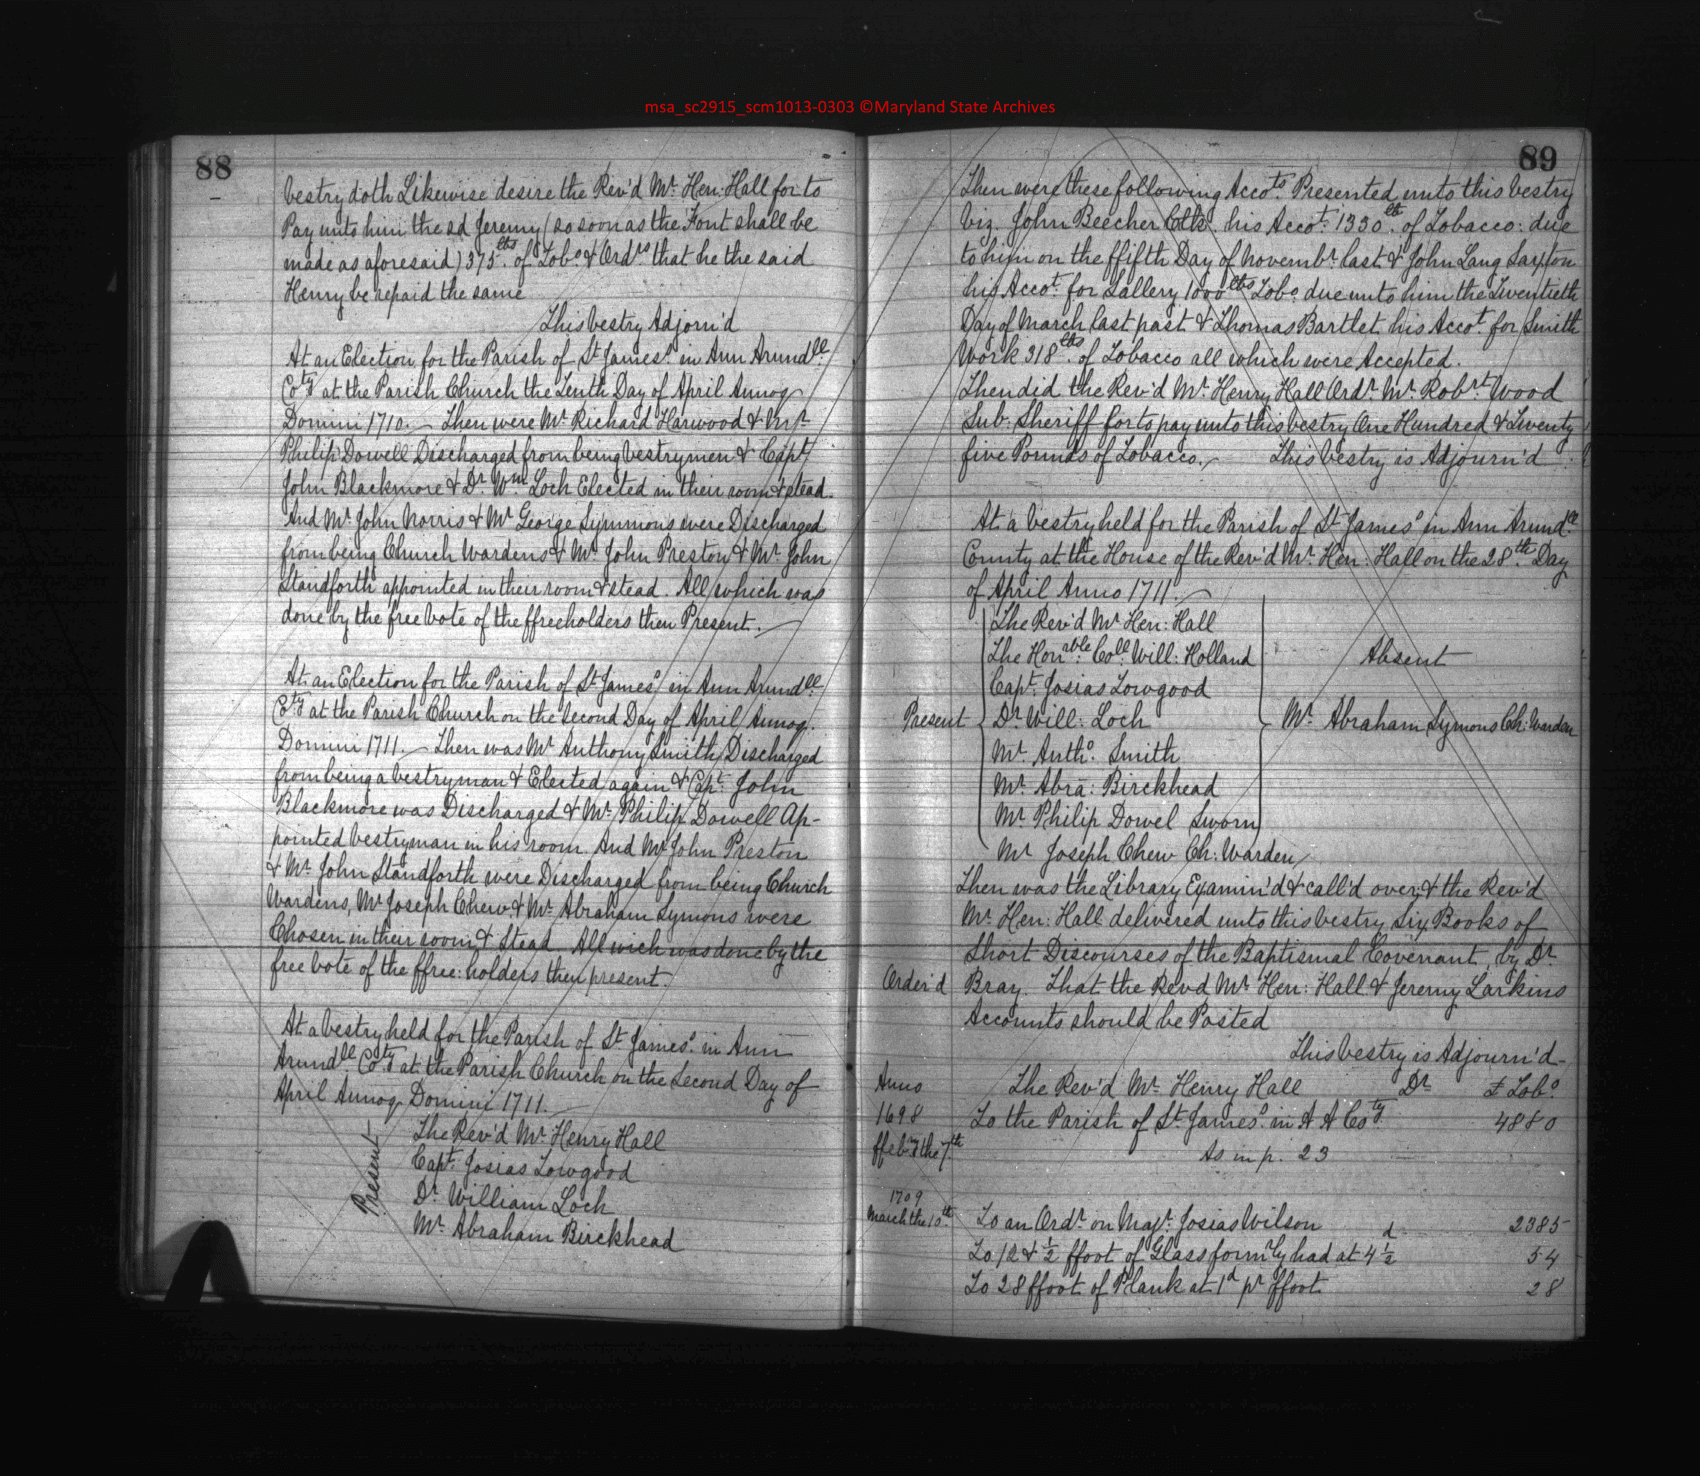 msa_sc2915_scm1013-0303 ©Maryland State Archives
88
Vestry doth Likewise desire the Rev'd Mr. Hen: Hall for to
Pay unto him the sd Jeremy (so soon as the Font shall be
made as aforesaid) 375 lbs. of Tobo. & Ordrs that he the said
Henry be repaid the same
This Vestry Adjorn'd
At an Election for the Parish of St James's in Ann Arundll
Coty at the Parish Church the Tenth Day of April Annoq
Domini 1710. Then were Mr Richard Harwood & Mr
Philip Dowell Discharged from being Vestrymen & Capt
John Blackmore & Dr. Wm. Loch Elected in their room & stead.
And Mr John Norris & Mr George Symmons were Discharged
from being Church Wardens & Mr. John Preston & Mr. John
Standforth appointed in their room & stead. All which was
done by the free Vote of the ffreeholders then Present.
At an Election for the Parish of St James's in Ann Arundll
Coty at the Parish Church on the Second Day of April Annoq.
Domini 1711. Then was Mr Anthony Smith Discharged
from being a Vestryman & Elected again & Capt. John
Blackmore was Discharged & Mr. Philip Dowell Ap-
pointed Vestryman in his room. And Mr John Preston
& Mr. John Standforth were Discharged from being Church
Wardens, Mr Joseph Chew & Mr. Abraham Symons were
Chosen in their room & Stead. All wich was done by the
free Vote of the ffree:holders then present.
At a Vestry held for the Parish of St James's in Ann
Arundll Coty at the Parish Church on the Second Day of
April Annoq Domini 1711.
Present
The Rev'd Mr Henry Hall
Capt. Josias Towgood
Dr William Loch
Mr. Abraham Birckhead
89
Then were these following Accots. Presented unto this Vestry
Viz. John Beecher Clk. his Accot. 1330 lb. of Tobacco: due
to him on the ffifth Day of Novembr. last & John Lang Saxton
his Accot. for Sallery 1000 lbs Tobo. due unto him the Twentieth
Day of March last past & Thomas Bartlet his Accot. for Smith
Work 318 lbs. of Tobacco all which were Accepted.
Then did the Rev'd Mr. Henry Hall Ordr. Mr. Robrt. Wood
Sub: Sheriff for to pay unto this Vestry One Hundred & Twenty
five Pounds of Tobacco. This Vestry is Adjourn'd
At a Vestry held for the Parish of St James's in Ann Arundll
County at the House of the Rev'd Mr. Hen: Hall on the 28th. Day
of April Anno 1711.
The Rev'd Mr Hen: Hall
The Honrable. Coll. Will: Holland
Absent
Capt. Josias Towgood
Present Dr Will: Loch Mr. Abraham Symons Ch: Warden
Mr Antho. Smith
Mr Abra: Birckhead
Mr Philip Dowel Sworn
Mr Joseph Chew Ch: Warden
Then was the Library Examin'd & call'd over & the Rev'd
Mr. Hen: Hall delivered unto this Vestry Six Books of
Short Discourses of the Baptismal Covenant, by Dr.
Order'd Bray. That the Revd Mr Hen: Hall & Jeremy Larkins
Accounts should be Posted
This Vestry is Adjourn'd
Anno The Rev'd Mr. Henry Hall Dr £ Tobo.
1698 To the Parish of St James's in A A Coty 4880
ffeby the 7th As in p. 23
1709
March the 10th. To an Ordr. on Majr. Josias Wilson 2385
To 12 & 1/2 ffoot of Glass formrly had at 4 1/2 d 54
To 28 ffoot of Plank at 1d pr ffoot 28